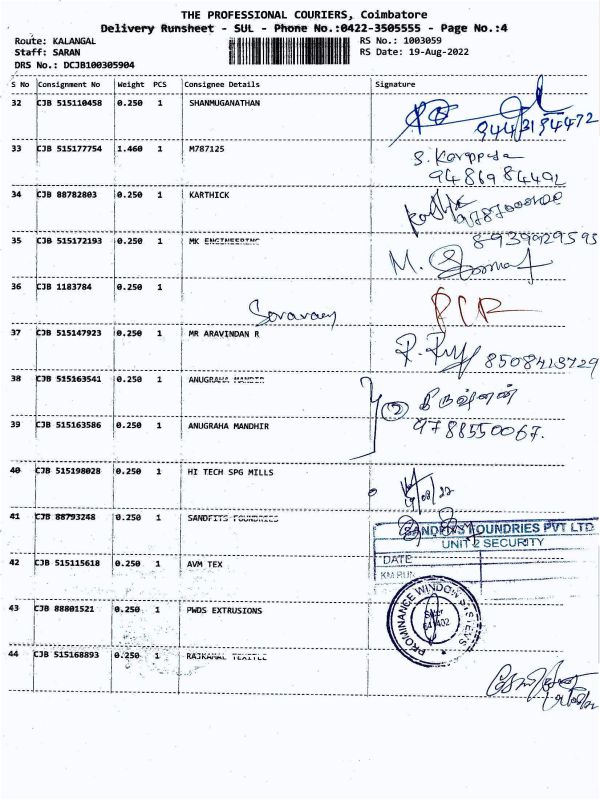 THE PROFESSIONAL COURIERS, Coimbatore
Delivery Runsheet - SUL - Phone No.:0422-3505555 - Page No.:4
Route: KALANGAL
RS No.: 1003059
Staff: SARAN
RS Date: 19-Aug-2022
DRS No.: DCJB100305904
S No Consignment No Weight PCS Consignee Details Signature
32 CJB 515110458 0.250 1 SHANMUGANATHAN
9443194472
33 CJB 515177754 1.460 1 M787125
S. Karuppasa
9486984492
34 CJB 88782803 0.250 1 KARTHICK
8939929593
35 CJB 515172193 0.250 1 MK ENGINEERING
M.
36 CJB 1183784 0.250 1
37 CJB 515147923 0.250 1 MR ARAVINDAN R
8508413729
38 CJB 515163541 0.250 1 ANUGRAHA MANDIR
39 CJB 515163586 0.250 1 ANUGRAHA MANDHIR
9788550067.
40 CJB 515198028 0.250 1 HI TECH SPG MILLS
19/08/22
41 CJB 88793248 0.250 1 SANDFITS FOUNDRIES
SANDFITS FOUNDRIES PVT LTD
UNIT 2 SECURITY
DATE
KM RUN
42 CJB 515115618 0.250 1 AVM TEX
43 CJB 88801521 0.250 1 PWDS EXTRUSIONS
PROMINANCE WINDOW SYSTEMS
Sulur
641402
44 CJB 515168893 0.250 1 RAJKAMAL TEXITLE